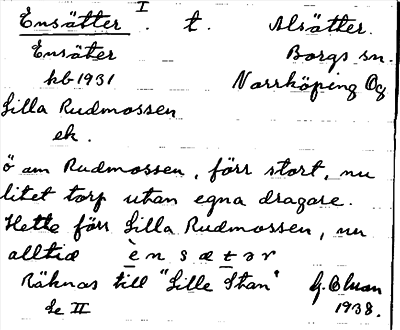 Ensätter I. t. Alsätter.
Ensäter Borgs sn.
hb 1931 Norrköping Ög
Lilla Rudmossen
ek.
ö om Rudmossen, förr stort, nu
litet torp utan egna dragare.
Hette förr Lilla Rudmossen, nu
alltid
Räknas till "Lille Stan"
Se II 1938.